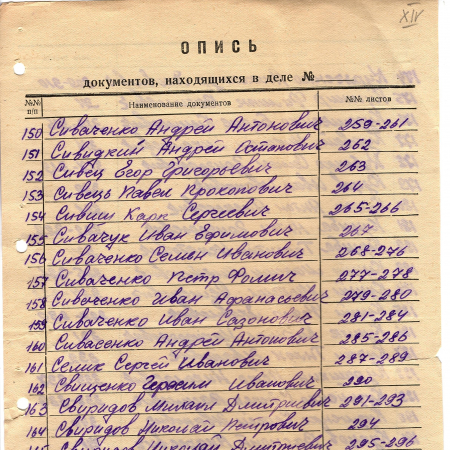 XIV
ОПИСЬ
документов, находящихся в деле №
№№ п/п Наименование документов №№ листов
150 Сиваченко Андрей Антонович 259-261
151 Сивидкий Андрей Остапович 262
152 Сивец Егор Григорьевич 263
153 Сивець Павел Прокопович 264
154 Сивиш Карп Сергеевич 265-266
155 Сивачук Иван Ефимович 267
156 Сиваченко Семен Иванович 268-276
157 Сиваченко Петр Фомич 277-278
158 Сиваченко Иван Афанасьевич 279-280
159 Сиваченко Иван Сазонович 281-284
160 Сивасенко Андрей Антонович 285-286
161 Селик Сергей Иванович 287-289
162 Свищенко Герасим Иванович 290
163 Свиридов Михаил Дмитриевич 291-293
164 Свиридов Николай Петрович 294
Свиридов Николай Дмитриевич 295-296